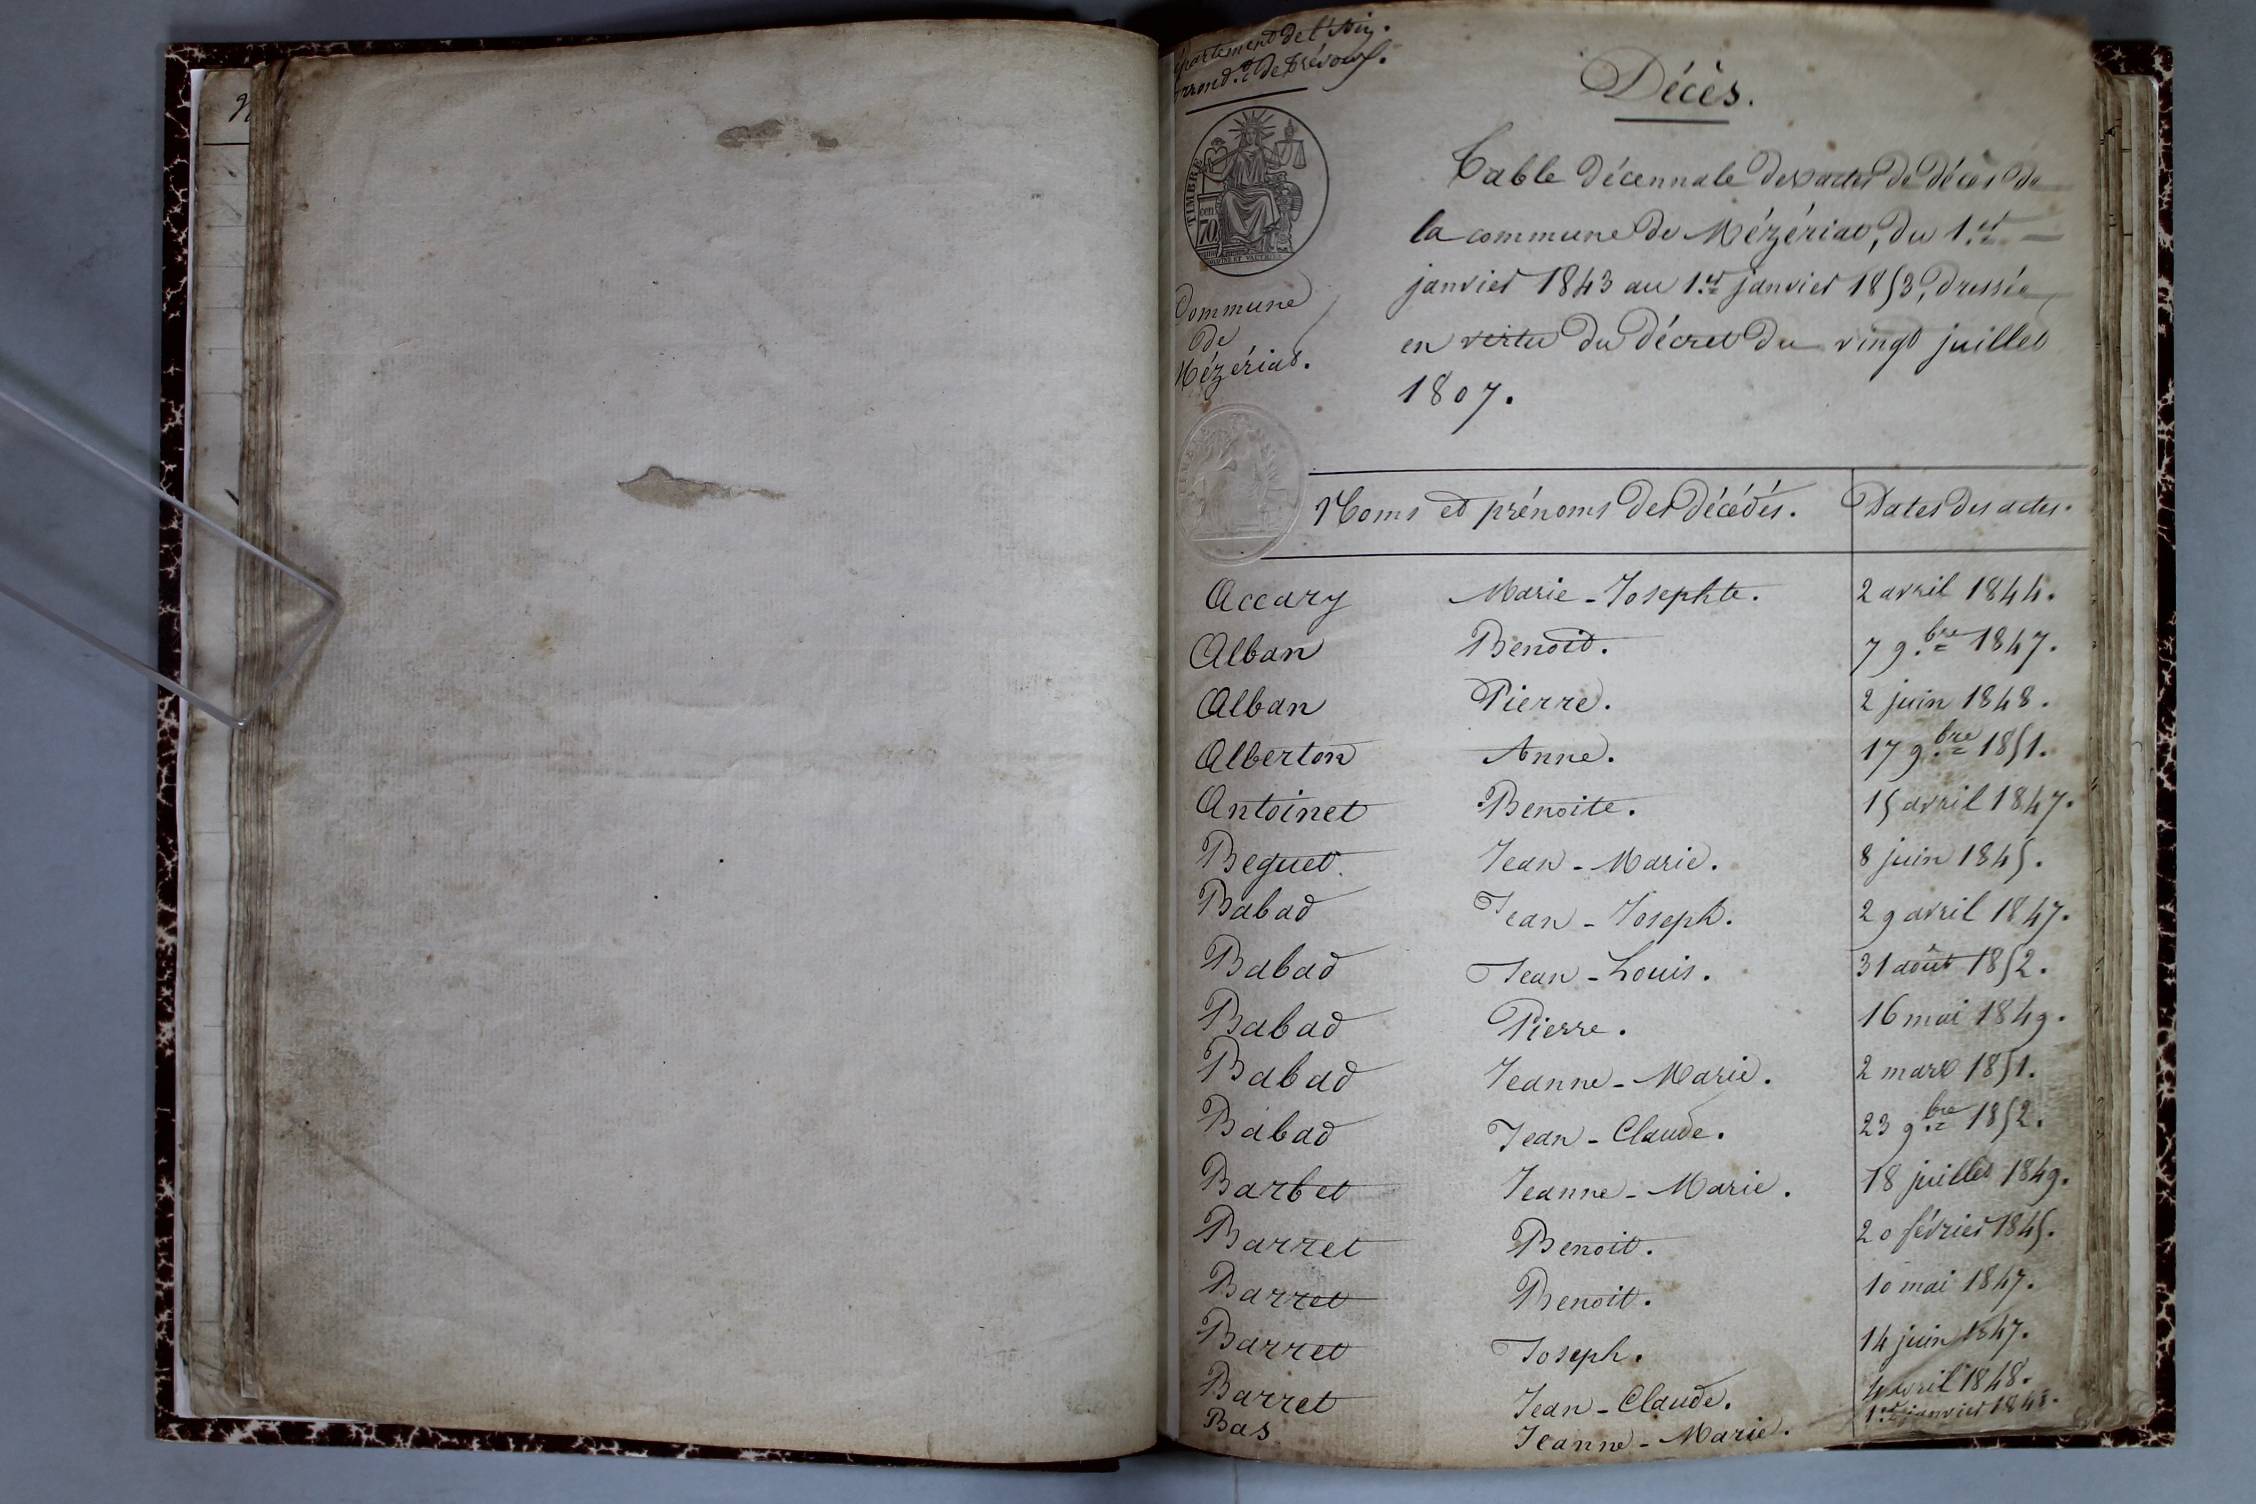 Département de l'Ain.
Arrond.t de Trévoux.
Décès.
TIMBRE
cen
70
Table décennale des actes de décès de
la commune de Mézériat, du 1.er
janvier 1843 au 1.er janvier 1853, dressée
en vertu du décret du vingt juillet
1807.
Commune
de
Mézériat.
Noms et prénoms des décédés. Dates des actes.
Accary Marie-Josephte. 2 avril 1844.
Alban Benoit. 7 9.bre 1847.
Alban Pierre. 2 juin 1848.
Alberton Anne. 17 9.bre 1851.
Antoinet Benoite. 15 avril 1847.
Beguet. Jean-Marie. 8 juin 1845.
Babad Jean-Joseph. 29 avril 1847.
Babad Jean-Louis. 31 août 1852.
Babad Pierre. 16 mai 1849.
Babad Jeanne-Marie. 2 mars 1851.
Babad Jean-Claude. 23 9.bre 1852.
Barbet Jeanne-Marie. 18 juillet 1849.
Barret Benoit. 20 février 1845.
Barret Benoit. 10 mai 1847.
Barret Joseph. 14 juin 1847.
Barret Jean-Claude. 4 avril 1848.
Bas Jeanne-Marie. 1.er janvier